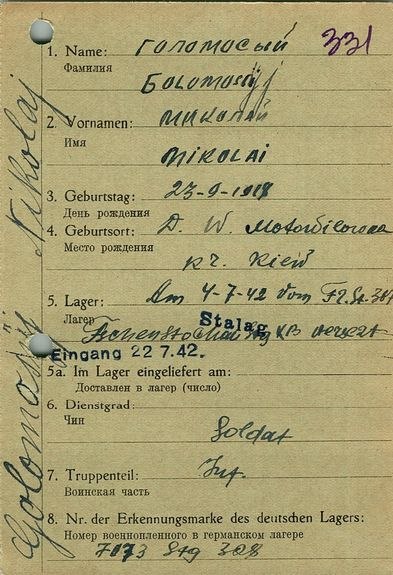 331
1. Name: Голомосый
Фамилия
Golomosÿj
2. Vornamen: Миколай
Имя
Nikolai
3. Geburtstag: 23-9-1918
День рождения
4. Geburtsort: D. W. Motowilowna
Место рождения
kr. Kiew
5. Lager: Am 4-7-42 vom Fr. St.
Лагер
Stalag
Eingang 22 7.42.
5a. Im Lager eingeliefert am:
Доставлен в лагер (число)
6. Dienstgrad:
Чин
Soldat
7. Truppenteil: Inf.
Воинская часть
8. Nr. der Erkennungsmarke des deutschen Lagers:
Номер военнопленного в германском лагере
7173 Stg 308
Golomosÿj Nikolaj